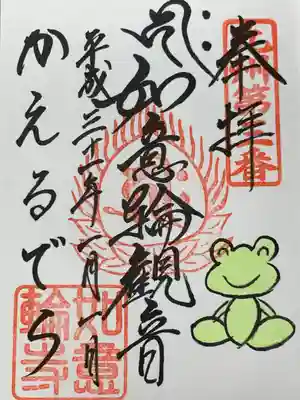 奉拝
如意輪觀音
平成三十一年一月一日
かえるでら
如意輪寺